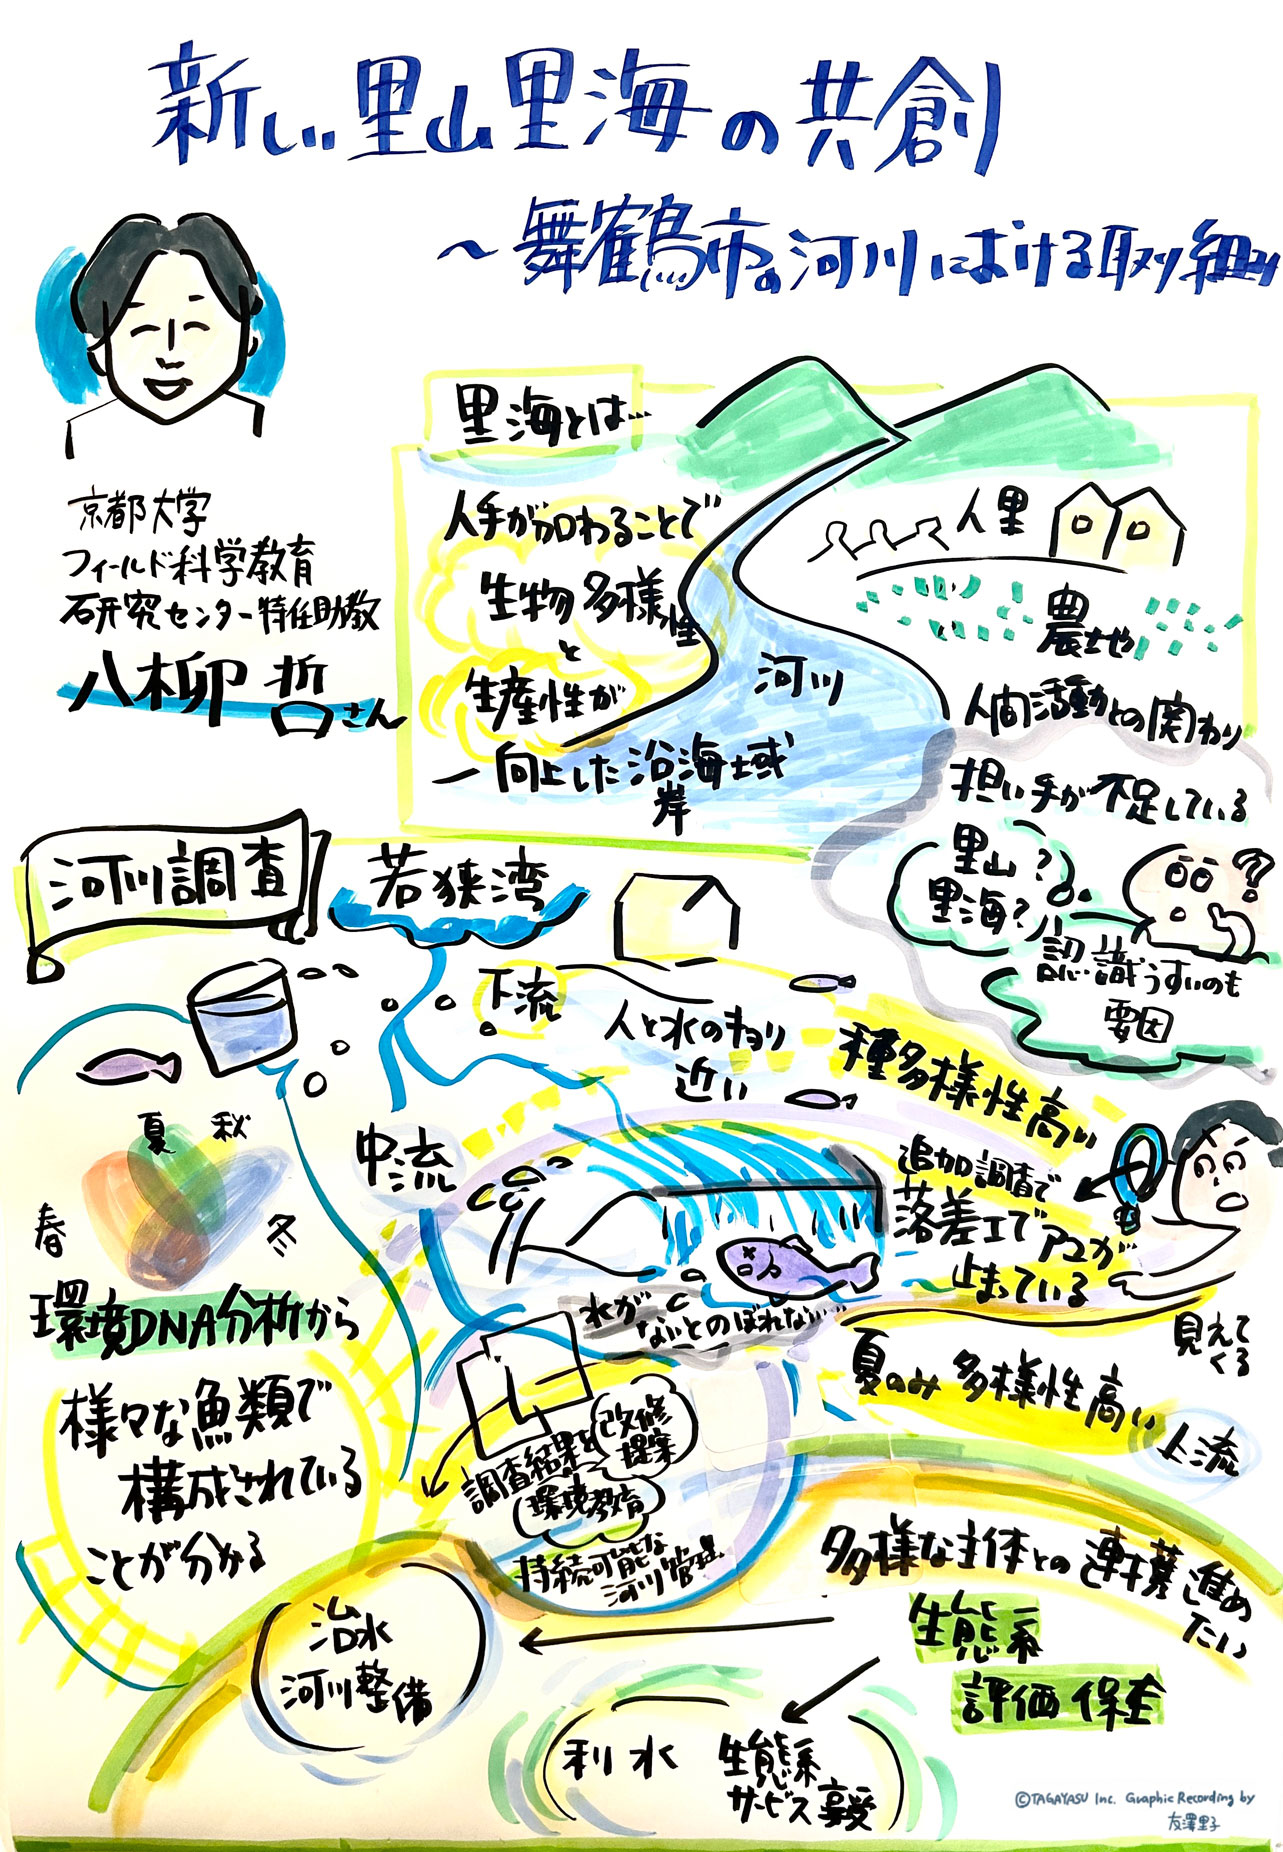 新しい里山里海の共創
～舞鶴市の河川における取り組み
京都大学
フィールド科学教育
研究センター特任助教
八柳 哲さん
里海とは…
人手が加わることで
生物多様性
と
生産性が
向上した沿海域
岸
河川
人里
農地
人間活動との関わり
担い手が不足している
里山?
里海?
認識うすいのも
要因
河川調査
若狭湾
下流
人と水のキョリ
近い
種多様性高い
夏 秋
春
冬
中流
追加調査で
落差工でアユが
止まっている
水が
ないとのぼれない…
見えて
くる
環境DNA分析から
様々な魚類で
構成されている
ことが分かる
夏のみ多様性高い
上流
調査結果を
改修
提案
環境教育
持続可能な
河川管理
多様な主体との連携進め
たい
治水
河川整備
生態系
評価 保全
利水
生態系
サービス享受
©TAGAYASU Inc. Graphic Recording by
友澤里子